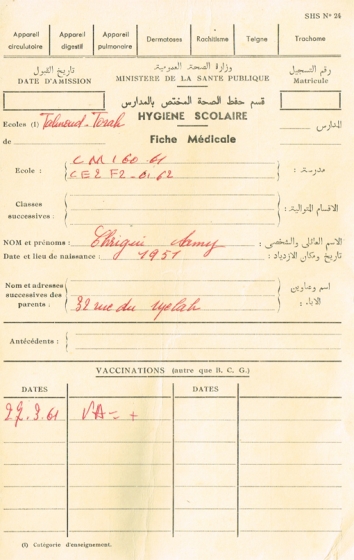 SHS N° 24
Appareil circulatoire
Appareil digestif
Appareil pulmonaire
Dermatoses
Rachitisme
Teigne
Trachome
تاريخ القبول
وزارة الصحة العمومية
رقم التسجيل
DATE D'AMISSION
MINISTERE DE LA SANTE PUBLIQUE
Matricule
قسم حفظ الصحة المختص بالمدارس
Ecoles (1) Talmud-Torah
HYGIENE SCOLAIRE
المدارس
de
Fiche Médicale
CM1 60-61
Ecole :
مدرسة :
CE2 F2
62
Classes successives :
الاقسام المتوالية :
NOM et prénoms :
الاسم العائلي والشخصي :
Date et lieu de naissance : 1951
تاريخ ومكان الازدياد :
Nom et adresses
اسم وعناوين
successives des
الاباء :
parents : 32 rue du
Antécédents :
VACCINATIONS (autre que B. C. G.)
DATES
DATES
27.3.61
+
(1) Catégorie d'enseignement.